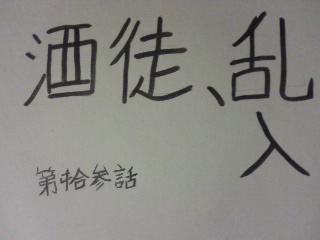 酒徒、乱
入
第拾参話